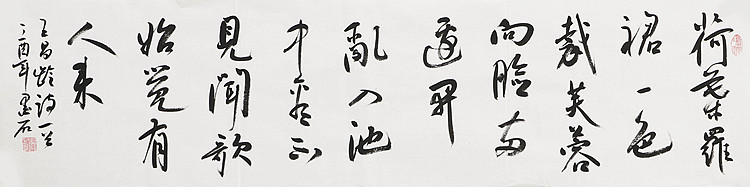 荷葉羅
裙一色
裁芙蓉
向臉兩
邊開
亂入池
中看不
見聞歌
始覺有
人來
王昌齡詩一首
丁酉年